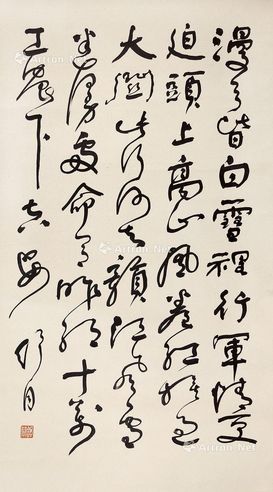 漫天皆白雪裡行軍情更
迫頭上高山風卷紅旗過
大關此行何去贛江風雪
迷漫處命令昨頒十萬
工農下吉安
Artron.Net